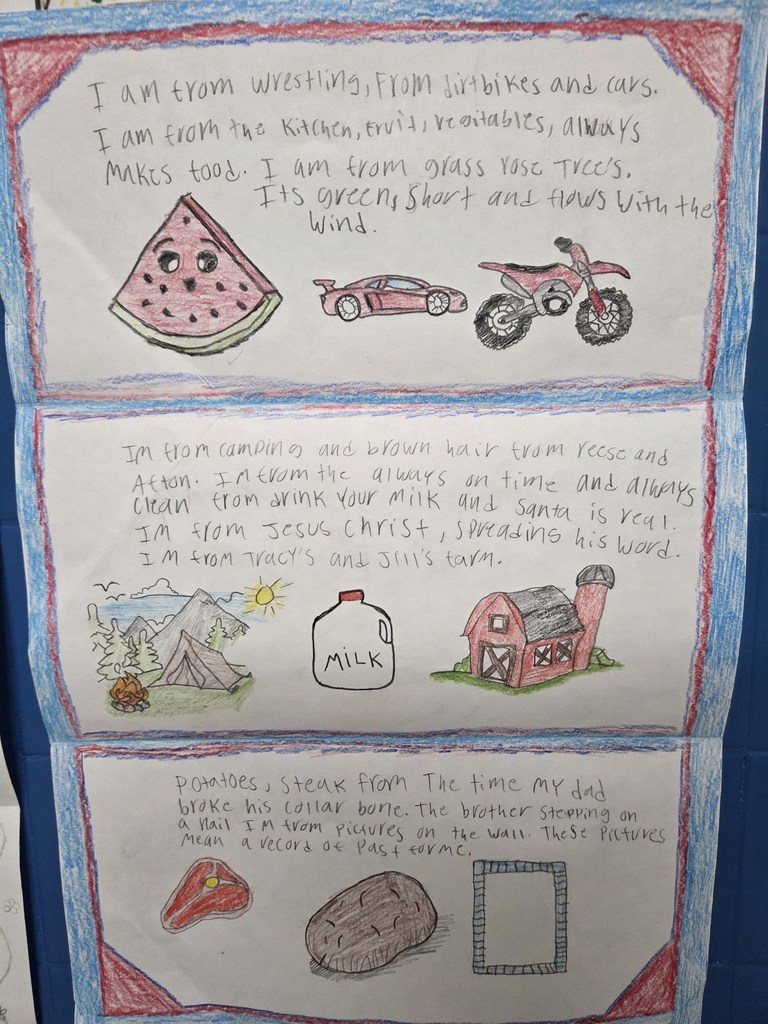 I am from wrestling, From dirtbikes and cars.
I am from the kitchen, fruit, vegitables, always
makes food. I am from grass rose Tree's.
Its green, short and flows with the
wind.
Im from camping and brown hair from reese and
Afton. I'm from the always on time and always
clean from drink your milk and Santa is real.
I'M from Jesus Christ, spreading his word.
I'M from Tracy's and Jill's farm.
MiLK
Potatoes, steak from The time my dad
broke his collar bone. The brother stepping on
a nail I'M from pictures on the wall. These pictures
mean a record of past for me.